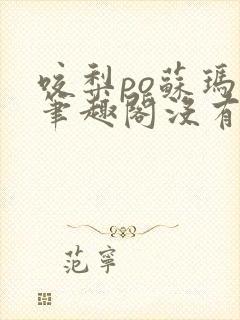 咬梨po蘇瑪
筆趣閣沒有
范寧